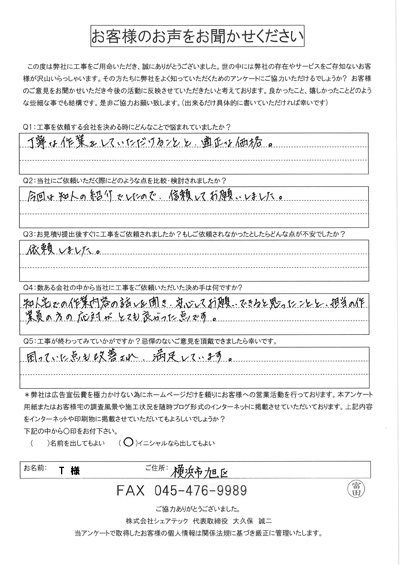 お客様のお声をお聞かせください
この度は弊社に工事をご用命いただき、誠にありがとうございました。世の中には弊社の存在やサービスをご存知ないお客
様が沢山いらっしゃいます。その方たちに弊社をよく知っていただくためのアンケートにご協力いただけるでしょうか? お客様
のご意見をお聞かせいただき今後の活動に反映させていただきたいと考えております。良かったこと、嬉しかったことどのよう
な些細な事でも結構です。是非ご協力お願い致します。(出来るだけ具体的に書いていただければ幸いです)
Q1:工事を依頼する会社を決める時にどんなことで悩まれていましたか?
丁寧な作業をしていただけることと、適正な価格。
Q2:当社にご依頼いただく際にどのような点を比較・検討されましたか?
今回は知人の紹介でしたので、信頼してお願いしました。
Q3:お見積り提出後すぐに工事をご依頼されましたか?もしご依頼されなかったとしたらどんな点が不安でしたか?
依頼しました。
Q4:数ある会社の中から当社に工事をご依頼いただいた決め手は何ですか?
知人宅での作業内容の話しを聞き、安心してお願いできると思ったことと、担当の作
業員の方の応対がとても良かった点です。
Q5:工事が終わってみていかがですか?忌憚のないご意見を頂戴できましたら幸いです。
困っていた点も改善され、満足しています。
*弊社は広告宣伝費を極力かけない為にホームページだけを頼りにお客様への営業活動を行っております。本アンケート
用紙またはお客様宅の調査風景や施工状況を随時ブログ形式のインターネットに掲載させていただいております。上記内容
をインターネットや印刷物に掲載させていただいてもよろしいでしょうか?
下記の中から○印をお付下さい。
( )名前を出してもよい (○)イニシャルなら出してもよい
お名前: T 様 ご住所: 横浜市旭区
FAX 045-476-9989
富田
ご協力ありがとうございました。
株式会社シェアテック 代表取締役 大久保 誠二
当アンケートで取得したお客様の個人情報は関係法規に基づき厳正に管理いたします。